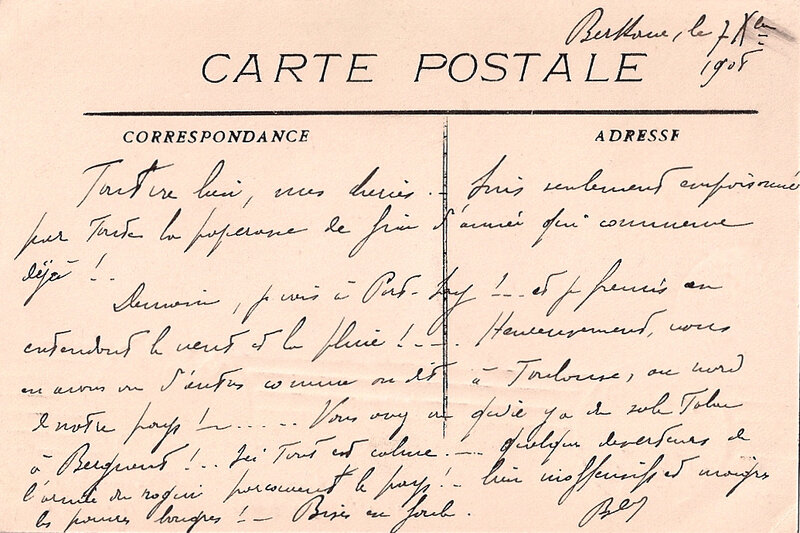 Berkane, le 7 Xbre
1908
CARTE POSTALE
CORRESPONDANCE
ADRESSE
Tout va bien, mes chéries... Suis seulement empoisonné
par toute la paperasse de fin d'année qui commence
déjà !..
Demain, je vais à Port-Say !... et je frémis en
entendant le vent et la pluie !... Heureusement, nous
en avons vu d'autres comme on dit à Toulouse, au nord
de notre pays !...... Vous avez vu qu'il y a du
à Berguent !... Ici tout est calme... quelques déserteurs de
l'armée du rogui parcourent le pays !- bien inoffensifs et maigres
les pauvres bougres !- Bises en foule.